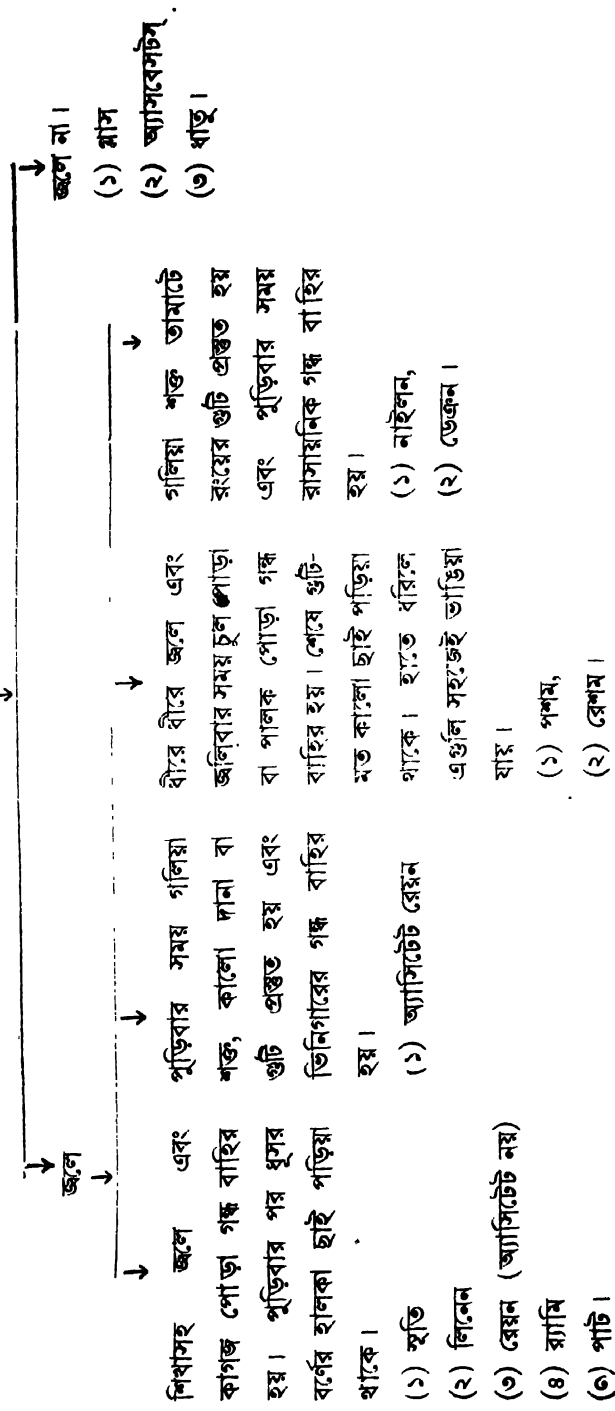 জ্বলে
জ্বলে না।
(১) গ্লাস
(২) অ্যাসবেসটস্
(৩) ধাতু।
শিখাসহ জ্বলে এবং
কাগজ পোড়া গন্ধ বাহির
হয়। পুড়িবার পর ধূসর
বর্ণের হালকা ছাই পড়িয়া
থাকে।
(১) সূতি
(২) লিনেন
(৩) রেয়ন (অ্যাসিটেট নয়)
(৪) র‍্যামি
(৫) পাট।
পুড়িবার সময় গলিয়া
শক্ত, কালো দানা বা
গুটি প্রস্তুত হয় এবং
ভিনিগারের গন্ধ বাহির
হয়।
(১) অ্যাসিটেট রেয়ন
ধীরে ধীরে জ্বলে এবং
জ্বলিবার সময় চুল পোড়া
বা পালক পোড়া গন্ধ
বাহির হয়। শেষে গুটি-
মত কালো ছাই পড়িয়া
থাকে। হাতে ধরিলে
এগুলি সহজেই ভাঙিয়া
যায়।
(১) পশম,
(২) রেশম।
গলিয়া শক্ত তামাটে
রংয়ের গুটি প্রস্তুত হয়
এবং পুড়িবার সময়
রাসায়নিক গন্ধ বাহির
হয়।
(১) নাইলন,
(২) ডেক্রন।